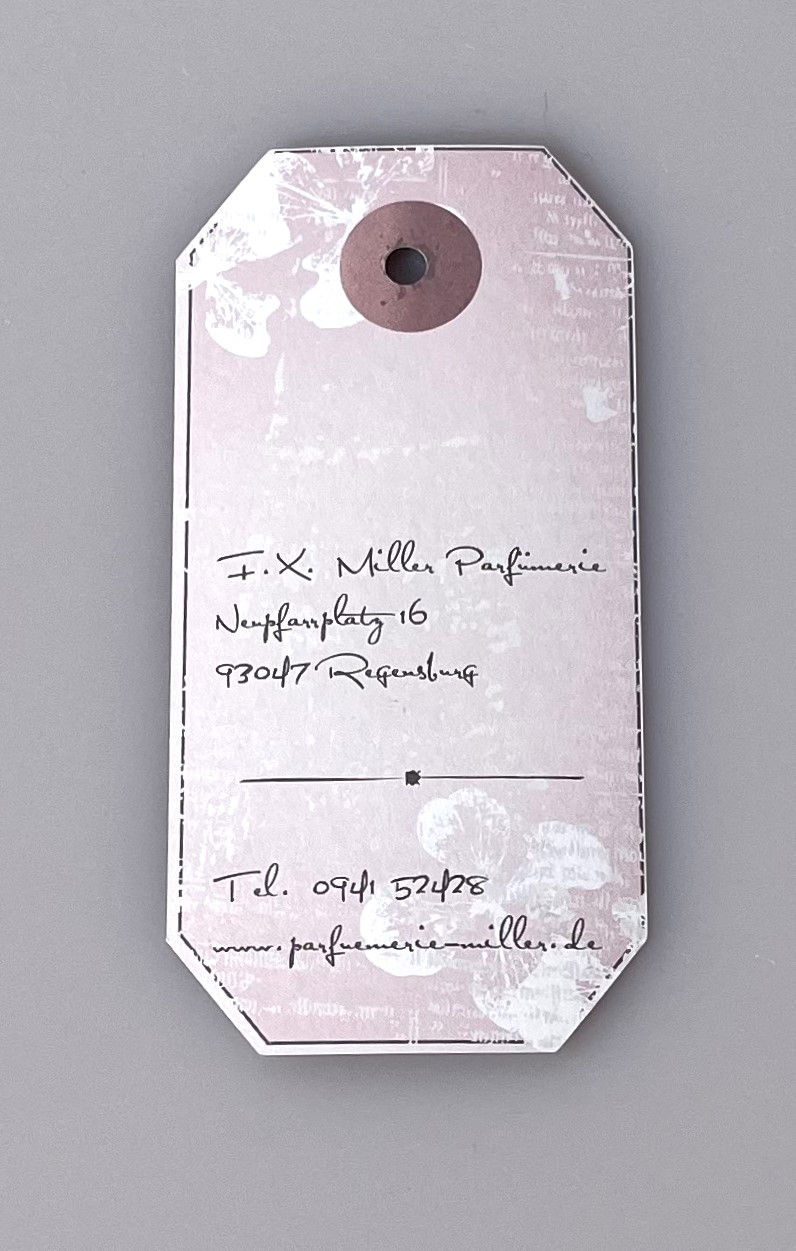 F.X. Miller Parfümerie
Neupfarrplatz 16
93047 Regensburg
Tel. 0941 52428
www.parfuemerie-miller.de